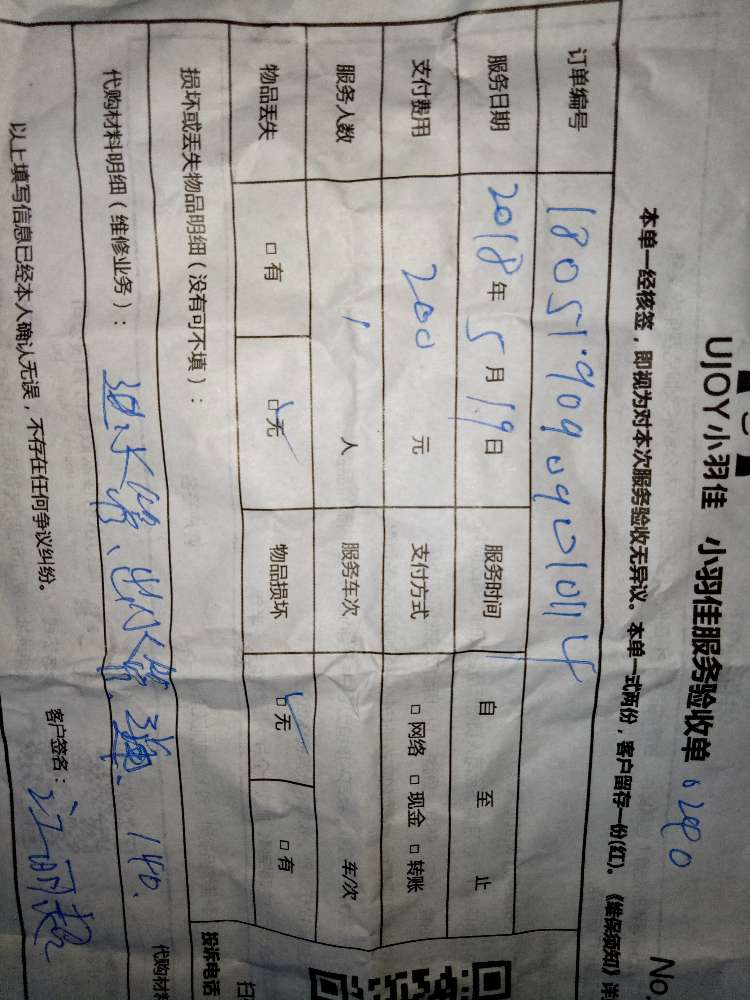 UJOY小羽佳 小羽佳服务验收单
No
本单一经核签，即视为对本次服务验收无异议。本单一式两份，客户留存一份(红)。《维保须知》详
订单编号
服务日期 2018年5月19日 服务时间 自 至 止
支付费用 200元 支付方式 □网络 □现金 □转账
服务人数 1人 服务车次 车/次
物品丢失 □有 □无 物品损坏 □无 □有
损坏或丢失物品明细（没有可不填）：
代购材料明细（维修业务）：进水管、出水管 140.
代购材
以上填写信息已经本人确认无误，不存在任何争议纠纷。
客户签名：
投诉电话